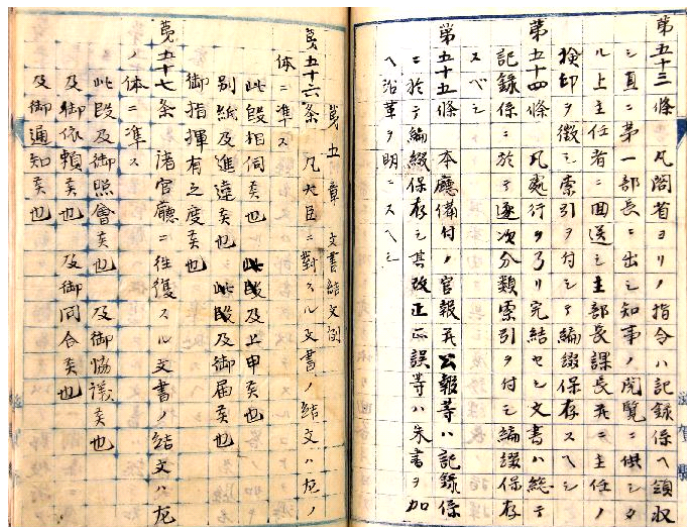 第五十三條 凡閣省ヨリノ指令ハ記録係ヘ領収
シ直ニ第一部長ニ出シ知事ノ閲覧ニ供シタ
ル上主任者ニ回送シ主部長課長并ニ主任ノ
検印ヲ徴シ索引ヲ付シテ編綴保存スヘシ
第五十四條 凡處行ヲ了リ完結セシ文書ハ総テ
記録係ニ於テ逐次分類索引ヲ付シ編綴保存
スベシ
第五十五條 本廳備付ノ官報并公報等ハ記録係
ニ於テ編綴保存シ其改正正誤等ハ朱書ヲ加
ヘ沿革ヲ明ニスヘシ
第五章 文書結文例
第五十六条 凡大臣ニ對スル文書ノ結文ハ左ノ
体ニ準ス
此段相伺候也 此段及上申候也
別紙及進達候也 此段及御届候也
御指揮有之度候也
第五十七条 諸官廳ニ往復スル文書ノ結文ハ左
ノ体ニ準ス
此段及御照會候也 及御協議候也
及御依頼候也 及御回答候也
及御通知候也
滋賀縣